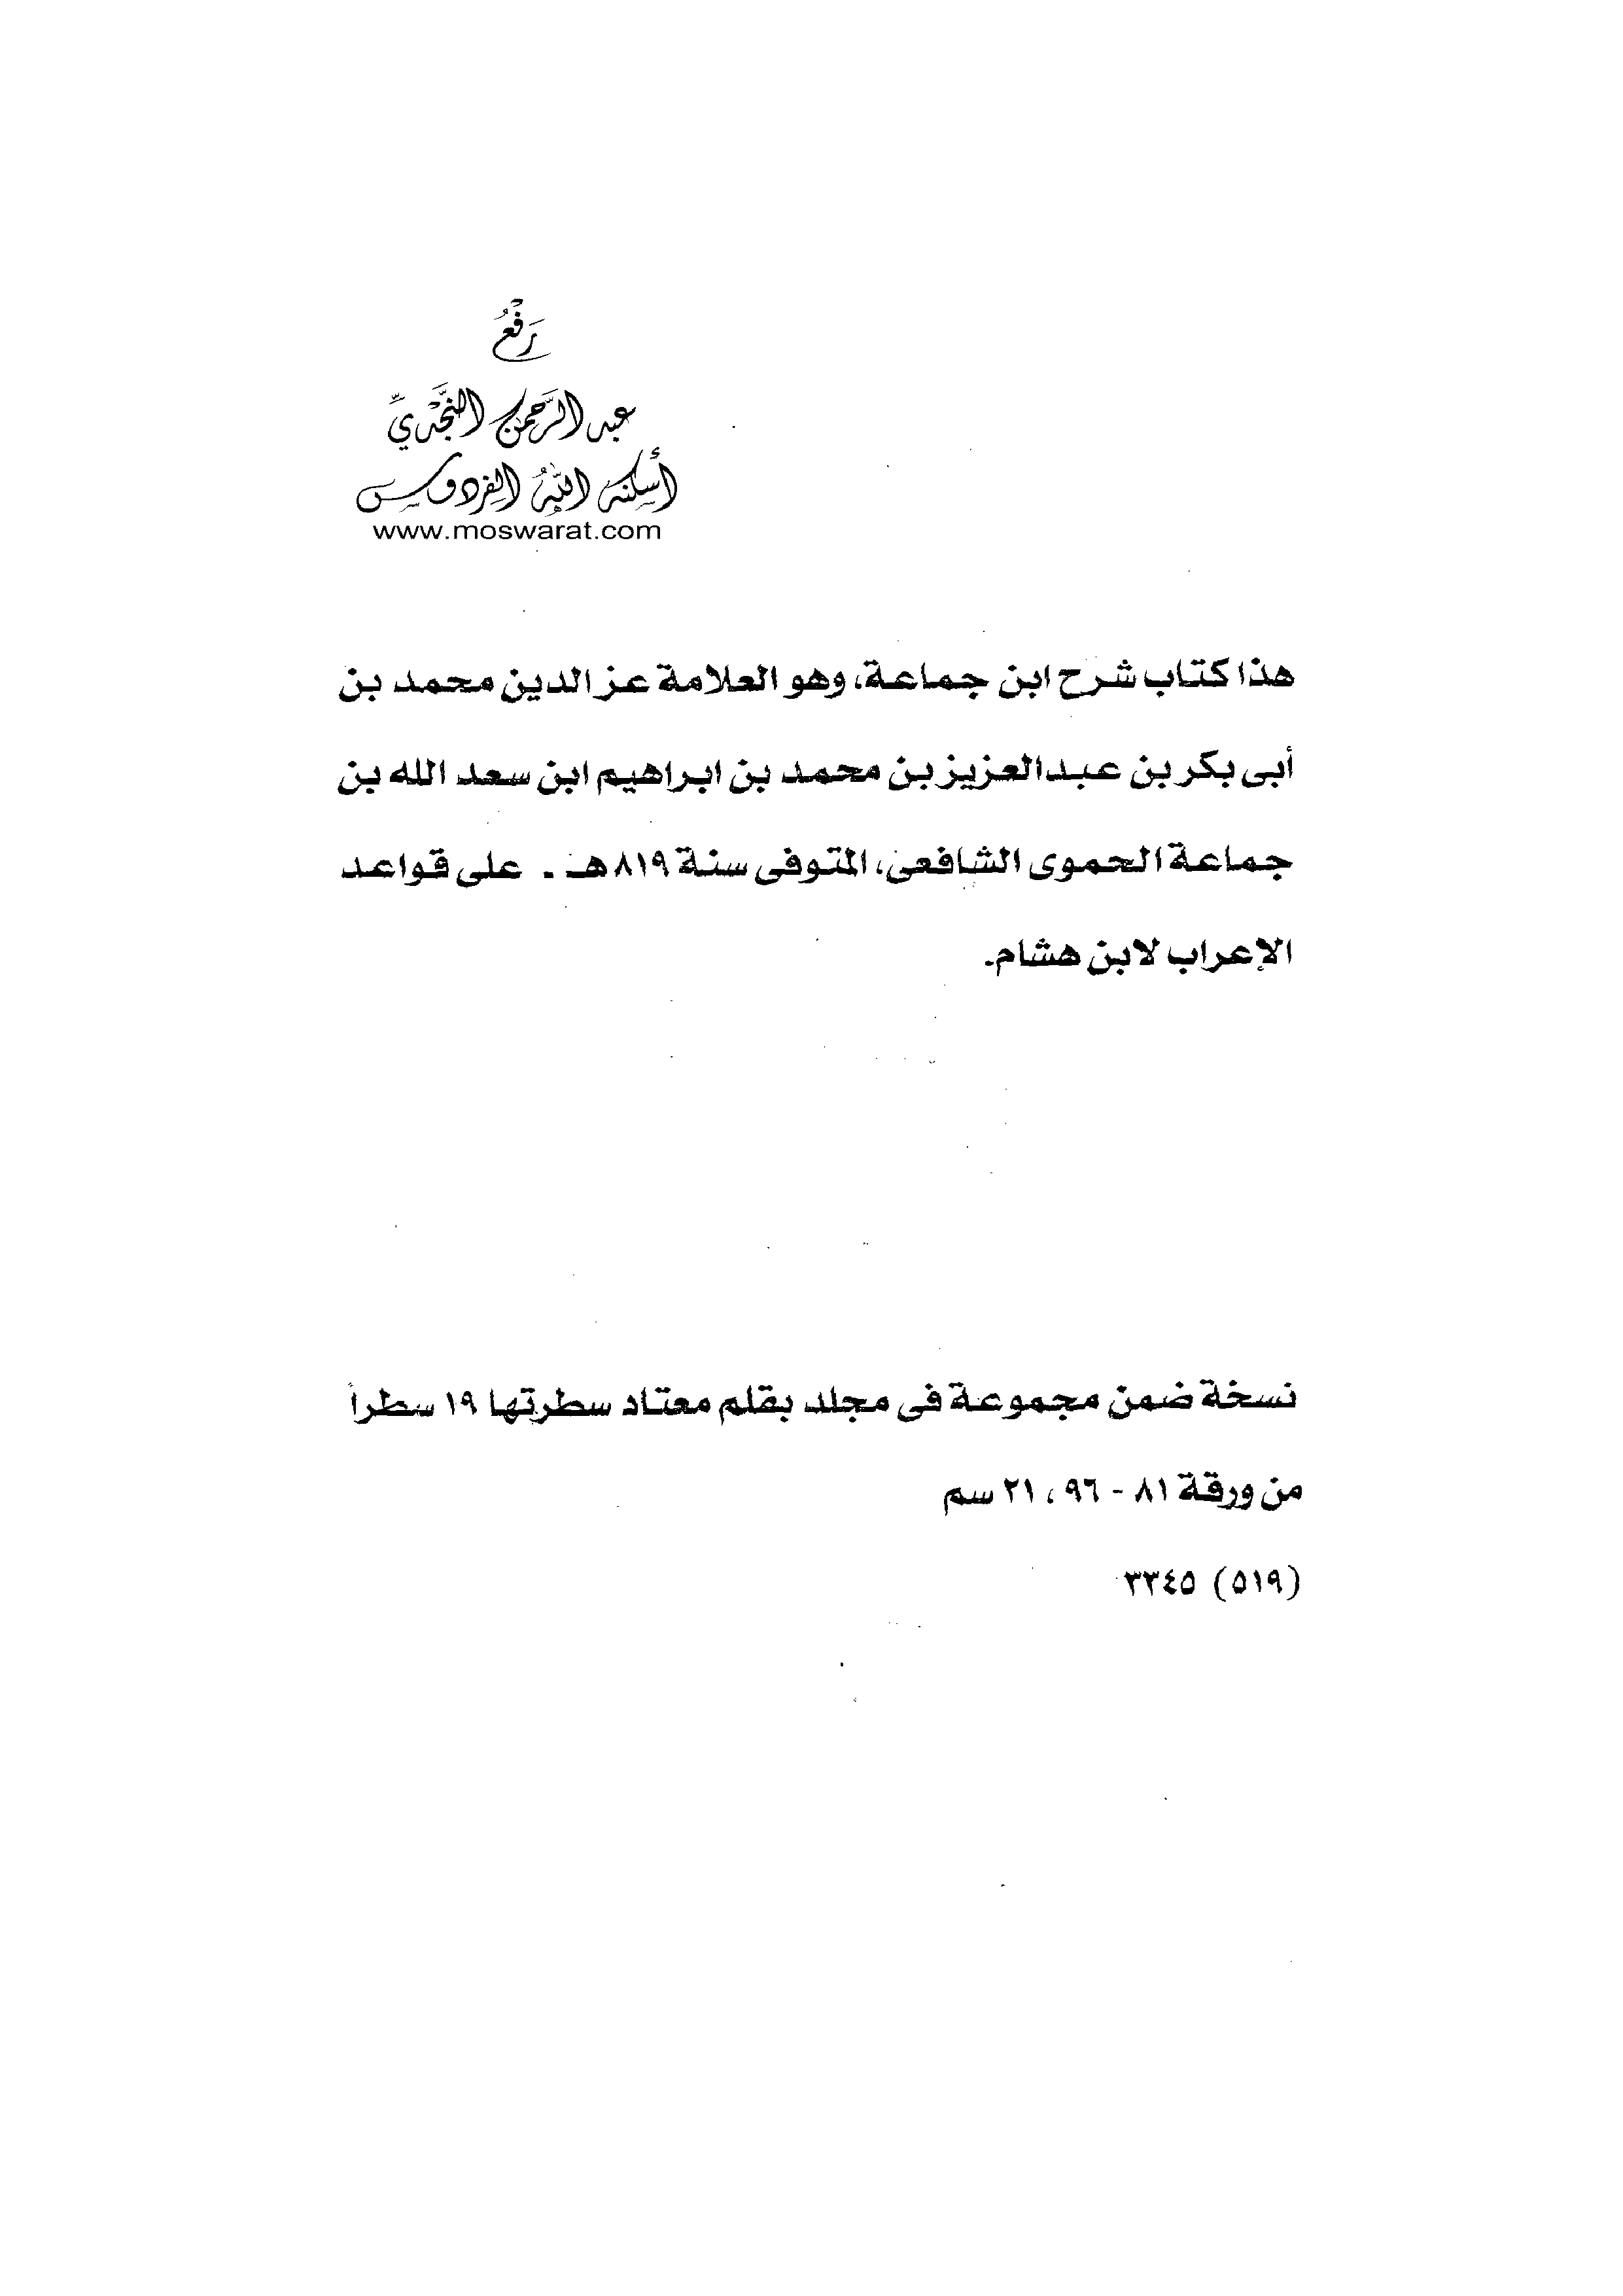 رَفْعُ
عبد الرَّحمن النَّجْديِّ
أسكنه اللهُ الفردوس
www.moswarat.com
هذا كتاب شرح ابن جماعة، وهو العلامة عز الدين محمد بن
أبى بكر بن عبد العزيز بن محمد بن ابراهيم ابن سعد الله بن
جماعة الحموى الشافعى، المتوفى سنة ٨١٩هـ . على قواعد
الإعراب لابن هشام.
نسخة ضمن مجموعة فى مجلد بقلم معتاد سطرتها ١٩ سطراً
من ورقة ٨١ - ٩٦ ، ٢١ سم
(٥١٩) ٣٣٤٥